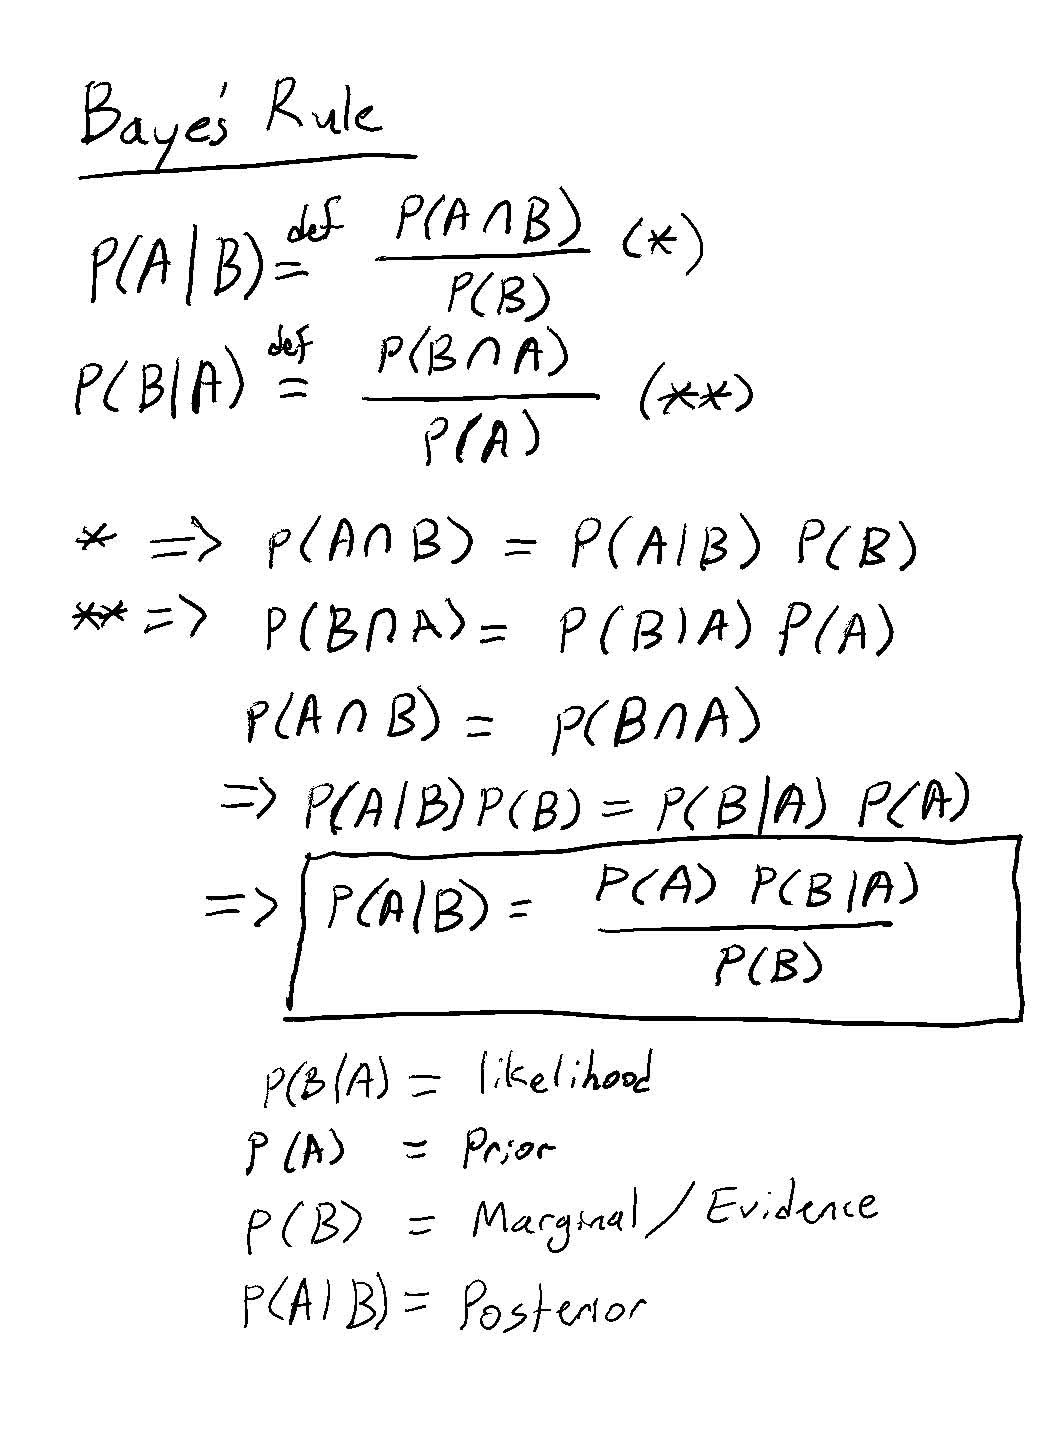 Baye's Rule
P(A|B) =def P(A∩B)/P(B) (*)
P(B|A) =def P(B∩A)/P(A) (**)
* => P(A∩B) = P(A|B) P(B)
** => P(B∩A) = P(B|A) P(A)
P(A∩B) = P(B∩A)
=> P(A|B)P(B) = P(B|A) P(A)
=> P(A|B) = P(A) P(B|A)/P(B)
P(B|A) = likelihood
P(A) = Prior
P(B) = Marginal/Evidence
P(A|B) = Posterior